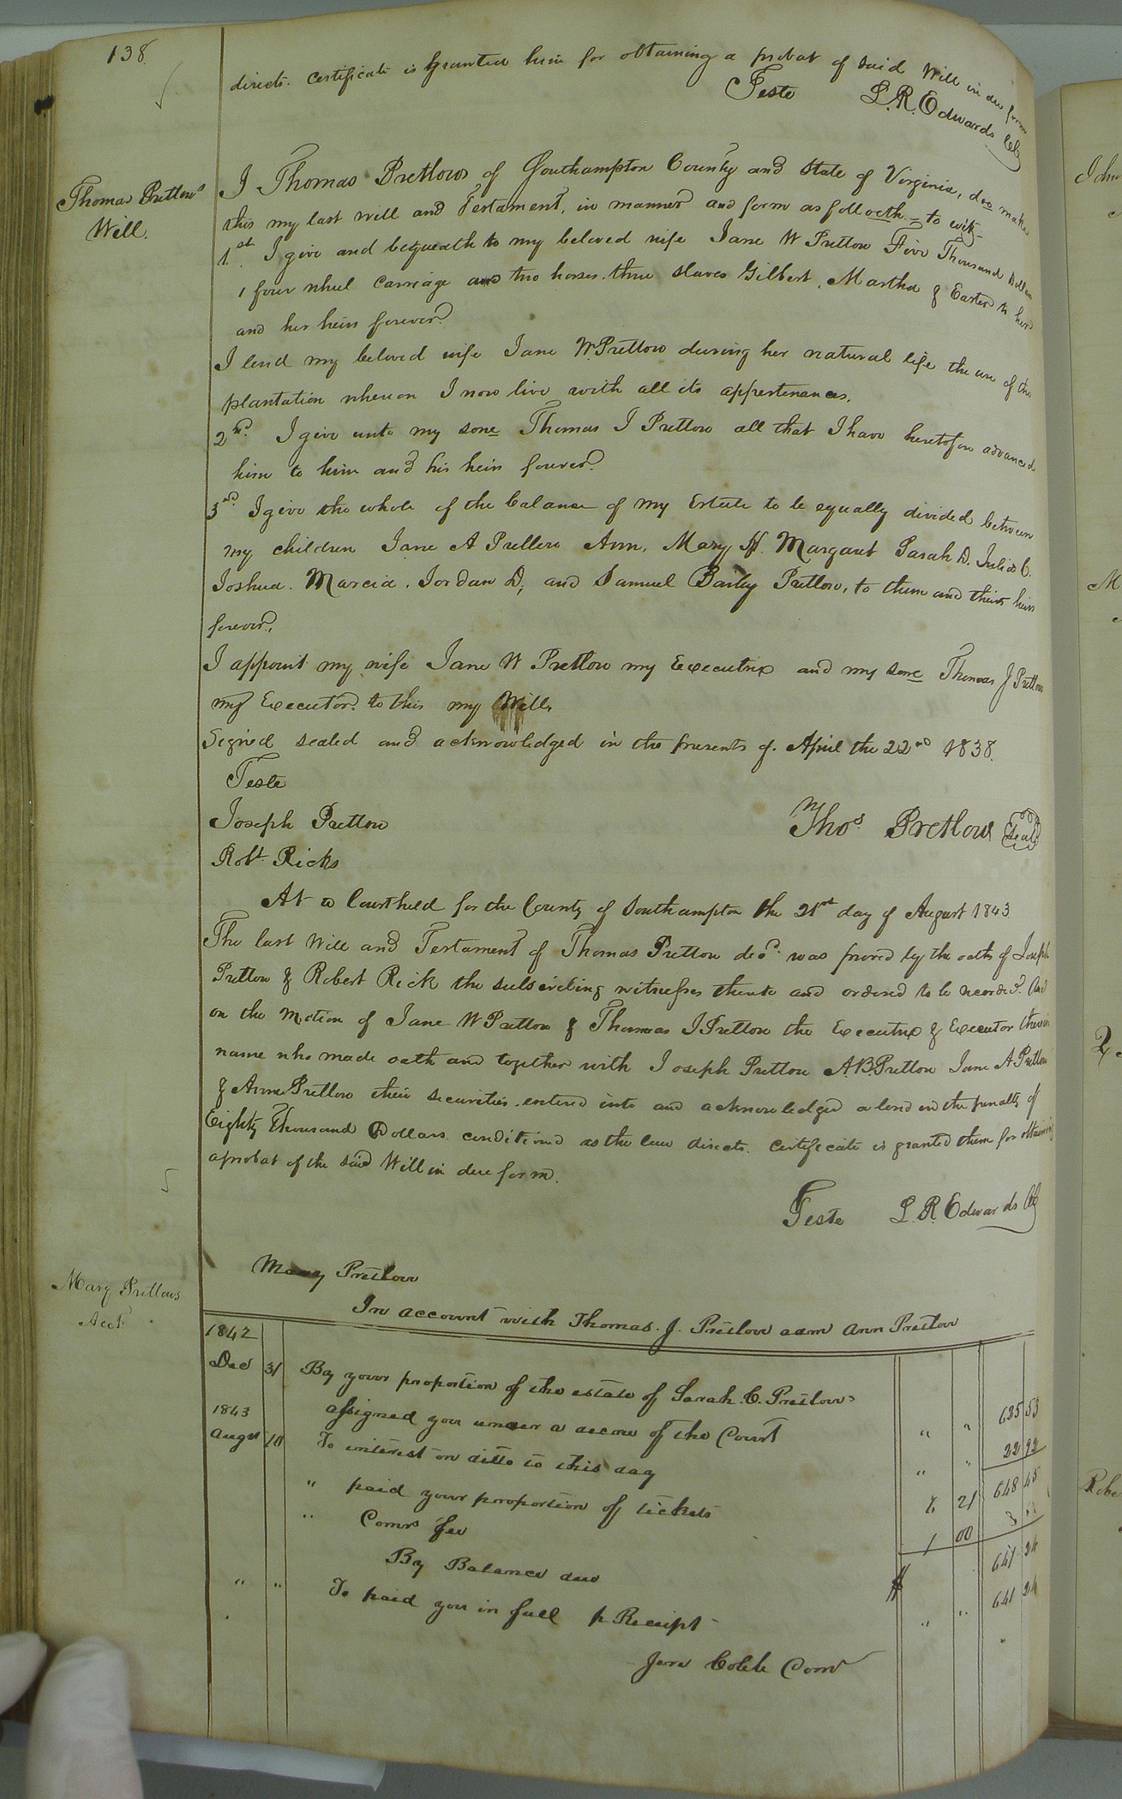 138
directs. Certificate is granted him for obtaining a probat of said Will in due form
Teste L. R. Edwards Clk
Thomas Pretlow's
Will.
I Thomas Pretlow of Southampton County and State of Virginia, doo make
this my last will and Testament, in manner and form as followeth = to wit,
1st I give and bequeath to my beloved wife Jane W Pretlow Five Thousand Dollars
1 four wheel carriage and two horses. three slaves Gilbert, Martha & Easter to her
and her heirs forever.
I lend my beloved wife Jane W Pretlow during her natural life the use of the
plantation whereon I now live with all its appertenances.
2nd. I give unto my sone Thomas J Pretlow all that I have heretofore advanced
him to him and his heirs forever.
3rd. I give the whole of the balance of my Estate to be equally divided between
my children Jane A Pretlow Ann, Mary H. Margaret Sarah D. Julia C.
Joshua. Marcia. Jordan D, and Samuel Bailey Pretlow, to them and their heirs
forever.
I appoint my wife Jane W Pretlow my Executrix and my sone Thomas J Pretlow
my Executor. to this my Will
Signed sealed and acknowledged in the presents of. April the 22nd 1838.
Teste
Joseph Pretlow
Thos Pretlow Seal
Robt Ricks
At a Court held for the County of Southampton the 21st day of August 1843
The last Will and Testament of Thomas Pretlow decd. was proved by the oaths of Joseph
Pretlow & Robert Rick the subscribing witnesses thereto and ordered to be recorded. And
on the Motion of Jane W Pretlow & Thomas J Pretlow the Executrix & Executor therein
name who made oath and together with Joseph Pretlow A.B. Pretlow Jane A Pretlow
& Anna Pretlow their securities entered into and acknowledged a bond in the penalty of
Eighty Thousand Dollars conditioned as the law directs. Certificate is granted them for obtaining
a probat of the said Will in due form.
Teste L. R. Edwards Clk
Mary Pretlows
Acct
Mary Pretlow
In account with Thomas. J. Pretlow adm Ann Pretlow
1842
Dec 31 By your proportion of the estate of Sarah. C. Pretlow
assigned you under a decree of the Court " " 625 53
1843
Augst 10 To interest on ditto to this day " " 22 92
648 45
" paid your proportion of tickets 6 21
" Comrs fee 1 00
By Balance due $ 641 24
" " To paid you in full p Receipt " " 641 24
Jere Cobb Comr